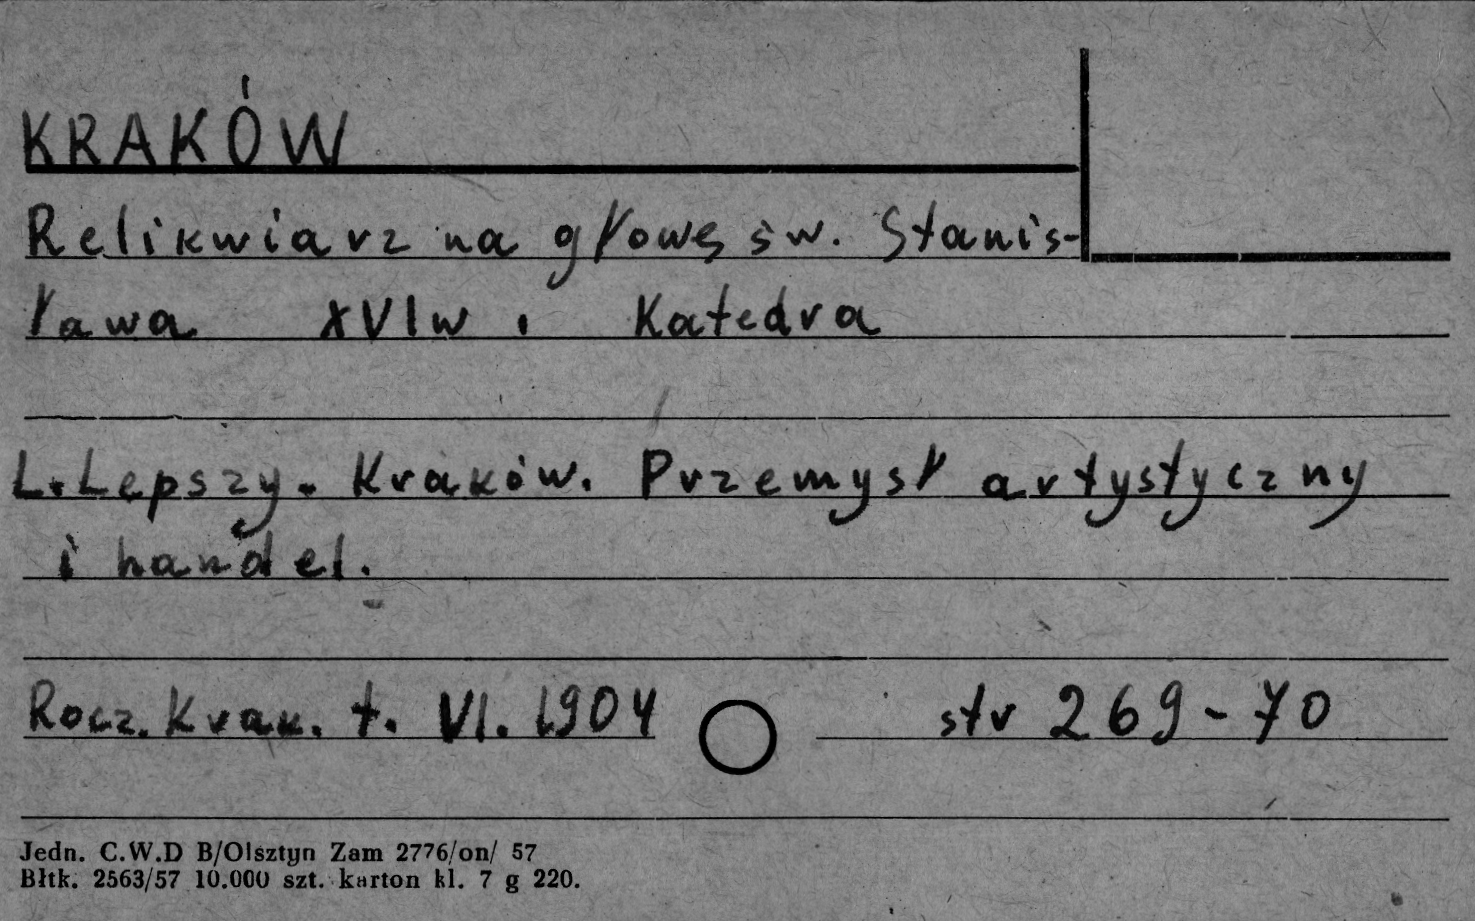 KRAKÓW
Relikwiarz na głowę św. Stanis-
ława XVIw. Katedra
L. Lepszy. Kraków. Przemysł artystyczny
i handel.
Rocz. Krak. t. VI. 1904 str 269-70
Jedn. C.W.D B/Olsztyn Zam 2776/on/ 57
Błtk. 2563/57 10.000 szt. karton kl. 7 g 220.